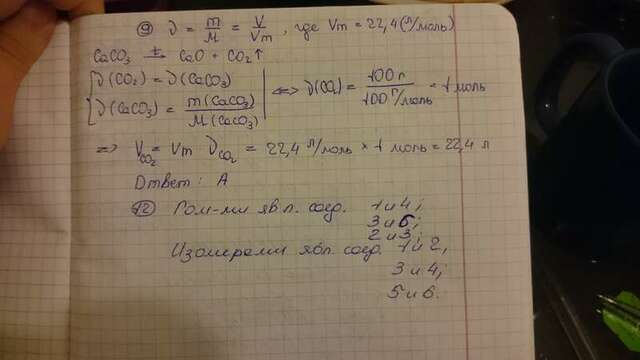 ⑨ ν = m/M = V/Vm, где Vm = 22,4 (л/моль)
CaCO₃ →(t) CaO + CO₂↑
{ν(CO₂) = ν(CaCO₃)
{ν(CaCO₃) = m(CaCO₃)/M(CaCO₃) | <=> ν(CO₂) = 100 г/100 г/моль = 1 моль
=> V CO₂ = Vm ν CO₂ = 22,4 л/моль × 1 моль = 22,4 л
Ответ: А
⑫ Гом-ми явл. соед. 1 и 4;
3 и 6;
2 и 3;
Изомерами явл. соед. 1 и 2,
3 и 4;
5 и 6.